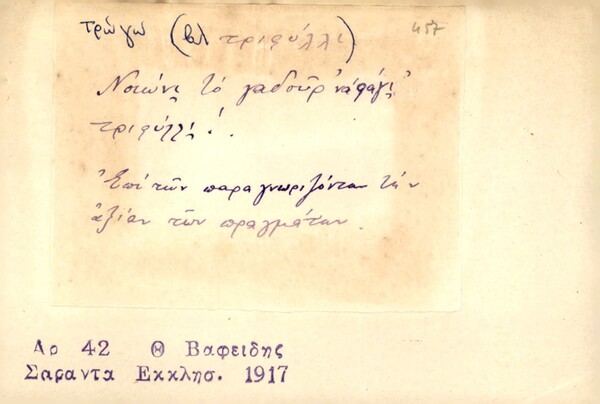 τρώγω (βλ τριφύλλι)
457
Νοιώνς τὸ γαδοῦρ' νὰ φάγῃ
τριφύλλι!.
Ἐπὶ τῶν παραγνωριζόντων τὴν
ἀξίαν τῶν πραγμάτων.
Αρ 42 Θ Βαφειδης
Σαραντα Εκκλησ. 1917